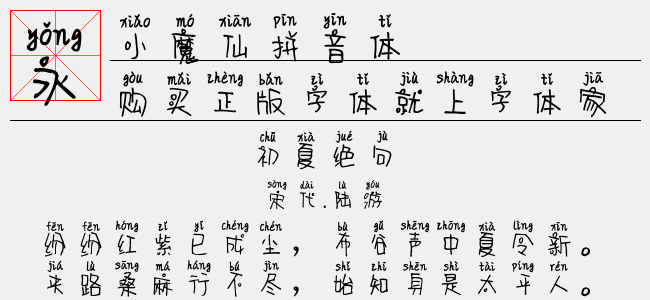 yǒng
永
xiǎo mó xiān pīn yīn tǐ
小魔仙拼音体
gòu mǎi zhèng bǎn zì tǐ jiù shàng zì tǐ jiā
购买正版字体就上字体家
chū xià jué jù
初夏绝句
sòng dài lù yóu
宋代.陆游
fēn fēn hóng zǐ yǐ chéng chén bù gǔ shēng zhōng xià lìng xīn
纷纷红紫已成尘，布谷声中夏令新。
jiá lù sāng má háng bú jìn shǐ zhī shēn shì tài píng rén
夹路桑麻行不尽，始知身是太平人。